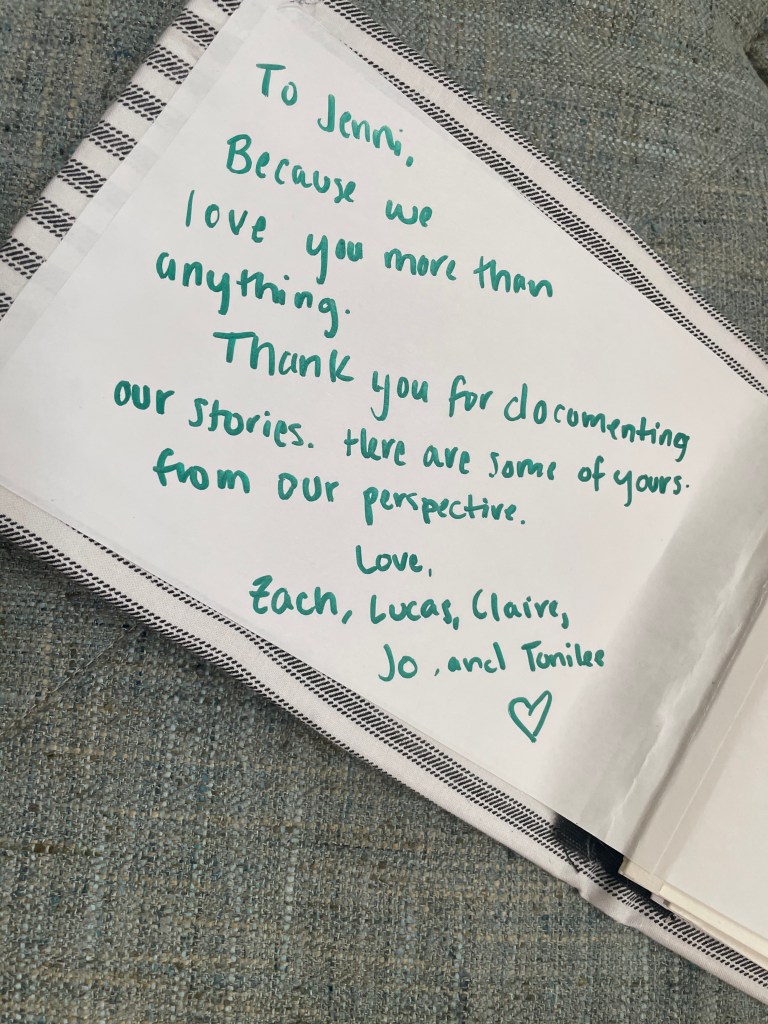 To Jenni,
Because we
love you more than
anything.
Thank you for documenting
our stories. Here are some of yours.
from our perspective.
Love,
Zach, Lucas, Claire,
Jo, and Tonilee